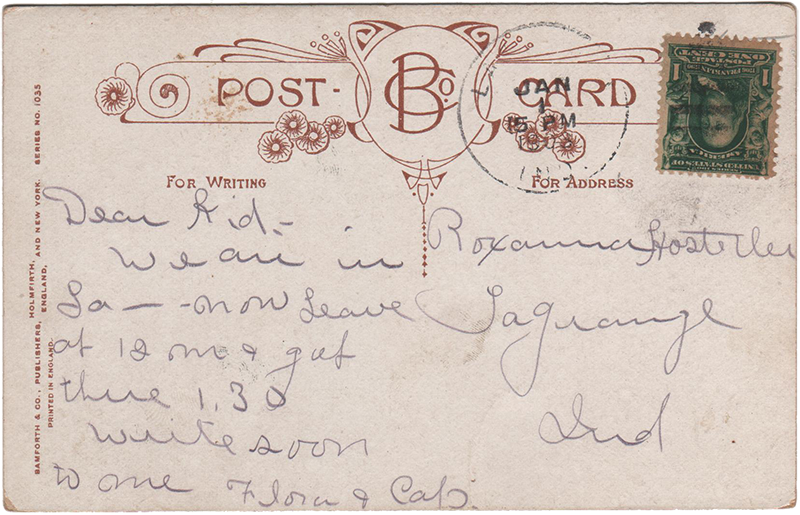 POST- BCo. CARD
JAN
1
15 PM
FOR WRITING
FOR ADDRESS
Dear Kid-
We are in
La - - now Leave
at 12 m & get
there 1.30
write soon
to me Flora & Cap.
Roxanna Hostetler
Lagrange
Ind
BAMFORTH & CO., PUBLISHERS, HOLMFIRTH, ENGLAND, AND NEW YORK. SERIES NO. 1035
PRINTED IN ENGLAND.
POSTAGE
ONE CENT
1 FRANKLIN 1
UNITED STATES OF
AMERICA